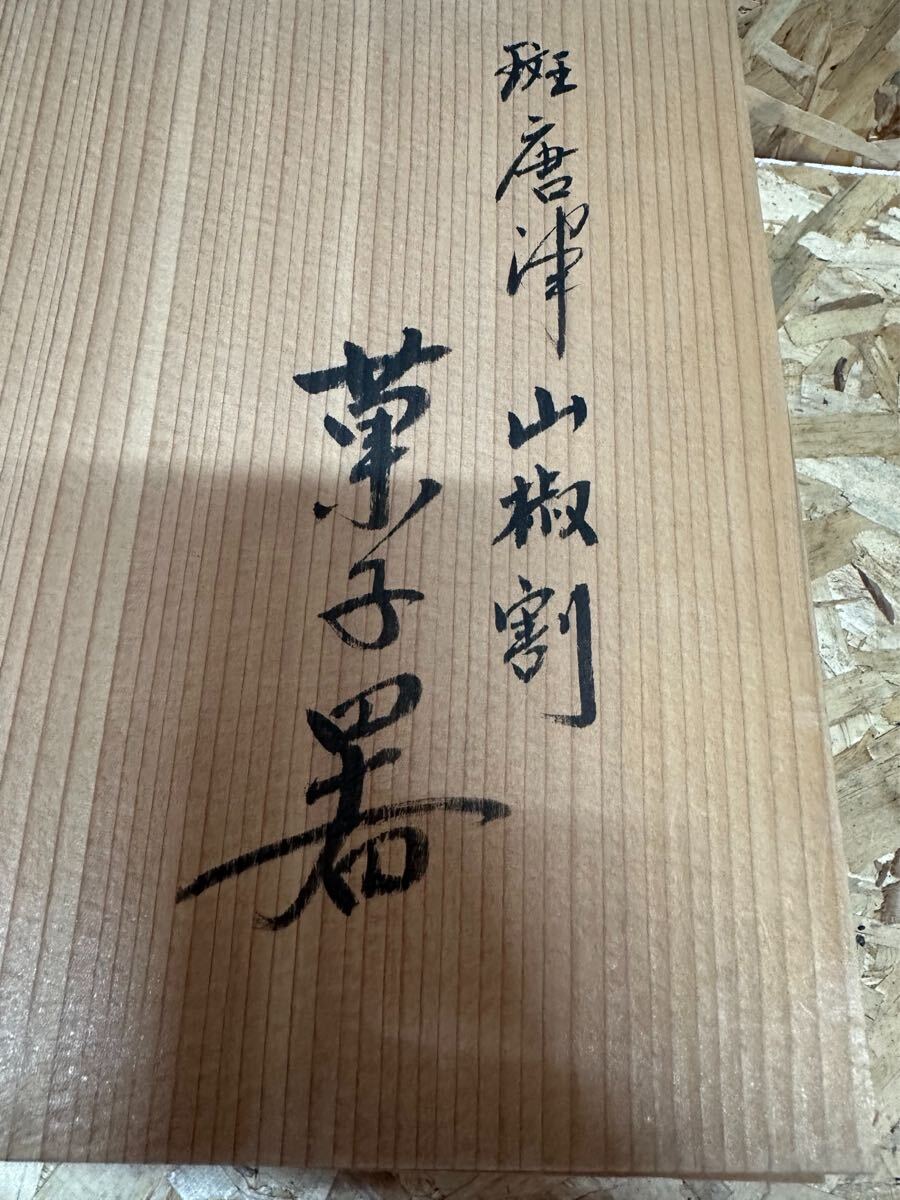 斑唐津山椒割
菓子器